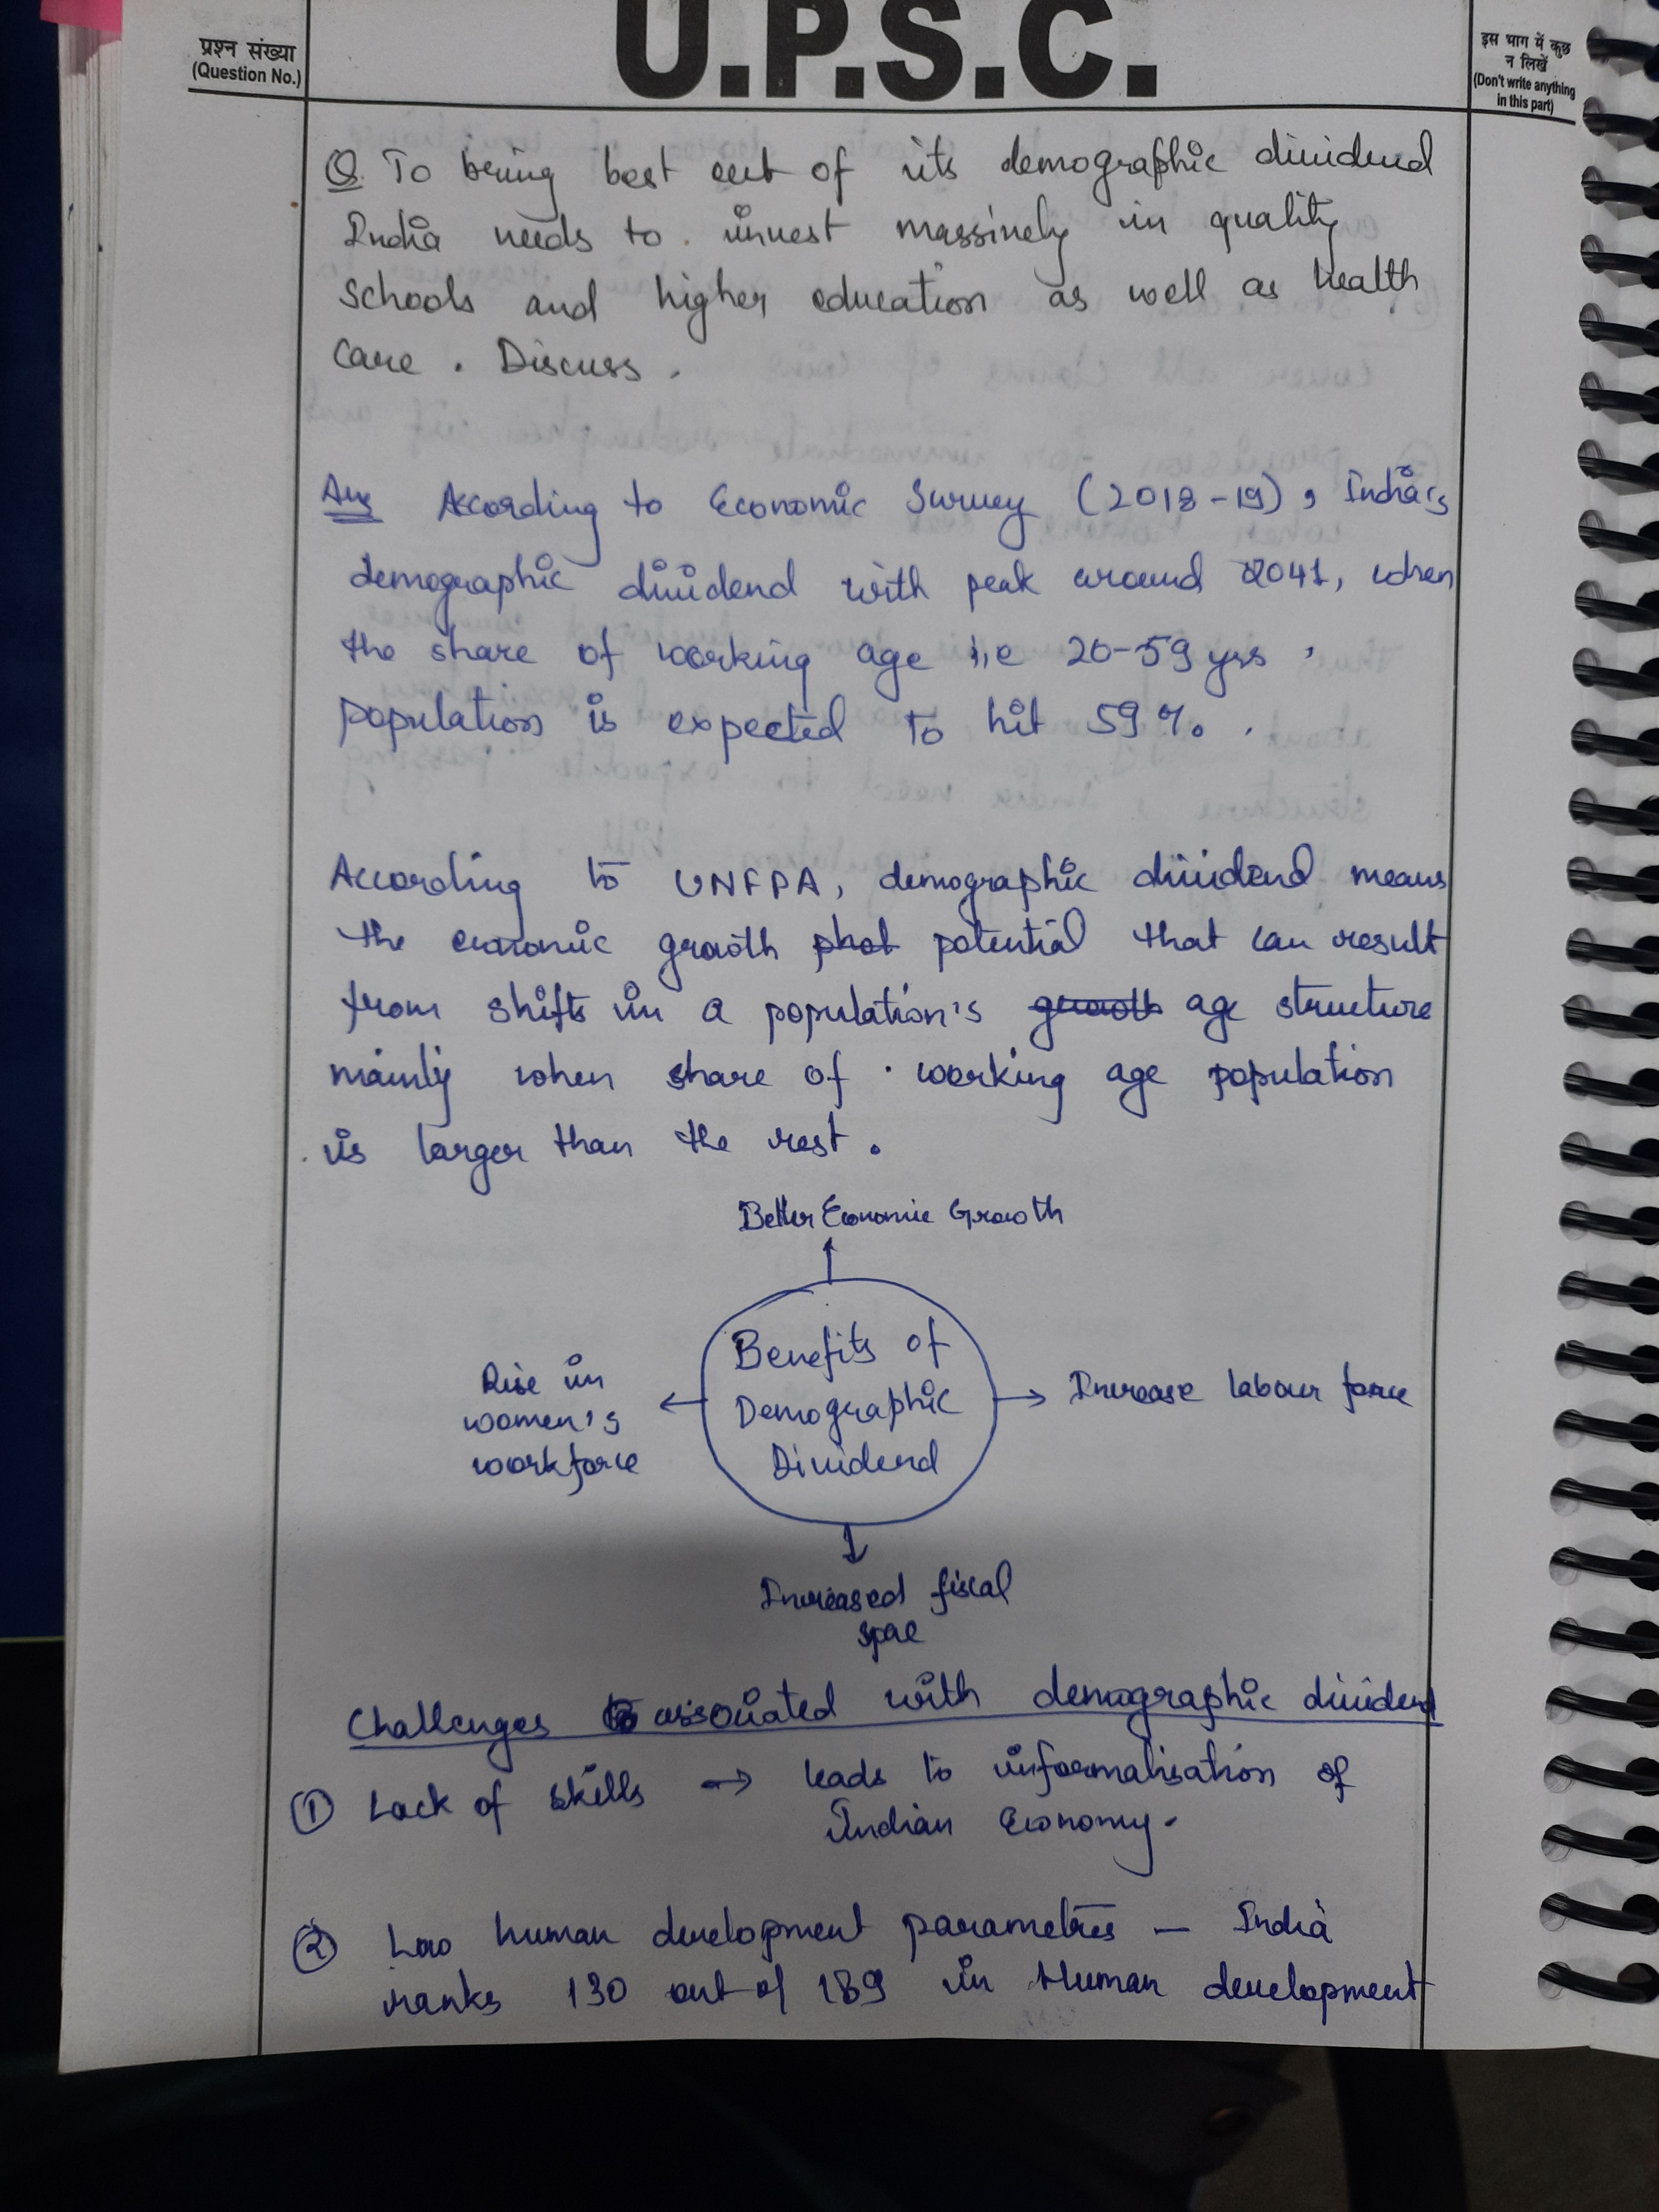 प्रश्न संख्या
(Question No.)
U.P.S.C.
इस भाग में कुछ
न लिखें
(Don't write anything
in this part)
Q. To bring best out of its demographic dividend
India needs to invest massively in quality
schools and higher education as well as health
care. Discuss.
Ans According to Economic Survey (2018-19), India's
demographic dividend with peak around 2041, when
the share of working age i.e 20-59 yrs
population is expected to hit 59%.
According to UNFPA, demographic dividend means
the economic growth potential that can result
from shifts in a population's growth age structure
mainly when share of working age population
is larger than the rest.
Better Economic Growth
Benefits of
Demographic
Dividend
Rise in
women's
workforce
Increase labour force
Increased fiscal
space
Challenges associated with demographic dividend
① Lack of skills → leads to informalisation of
Indian Economy.
② Low human development parameters — India
ranks 130 out of 189 in Human development